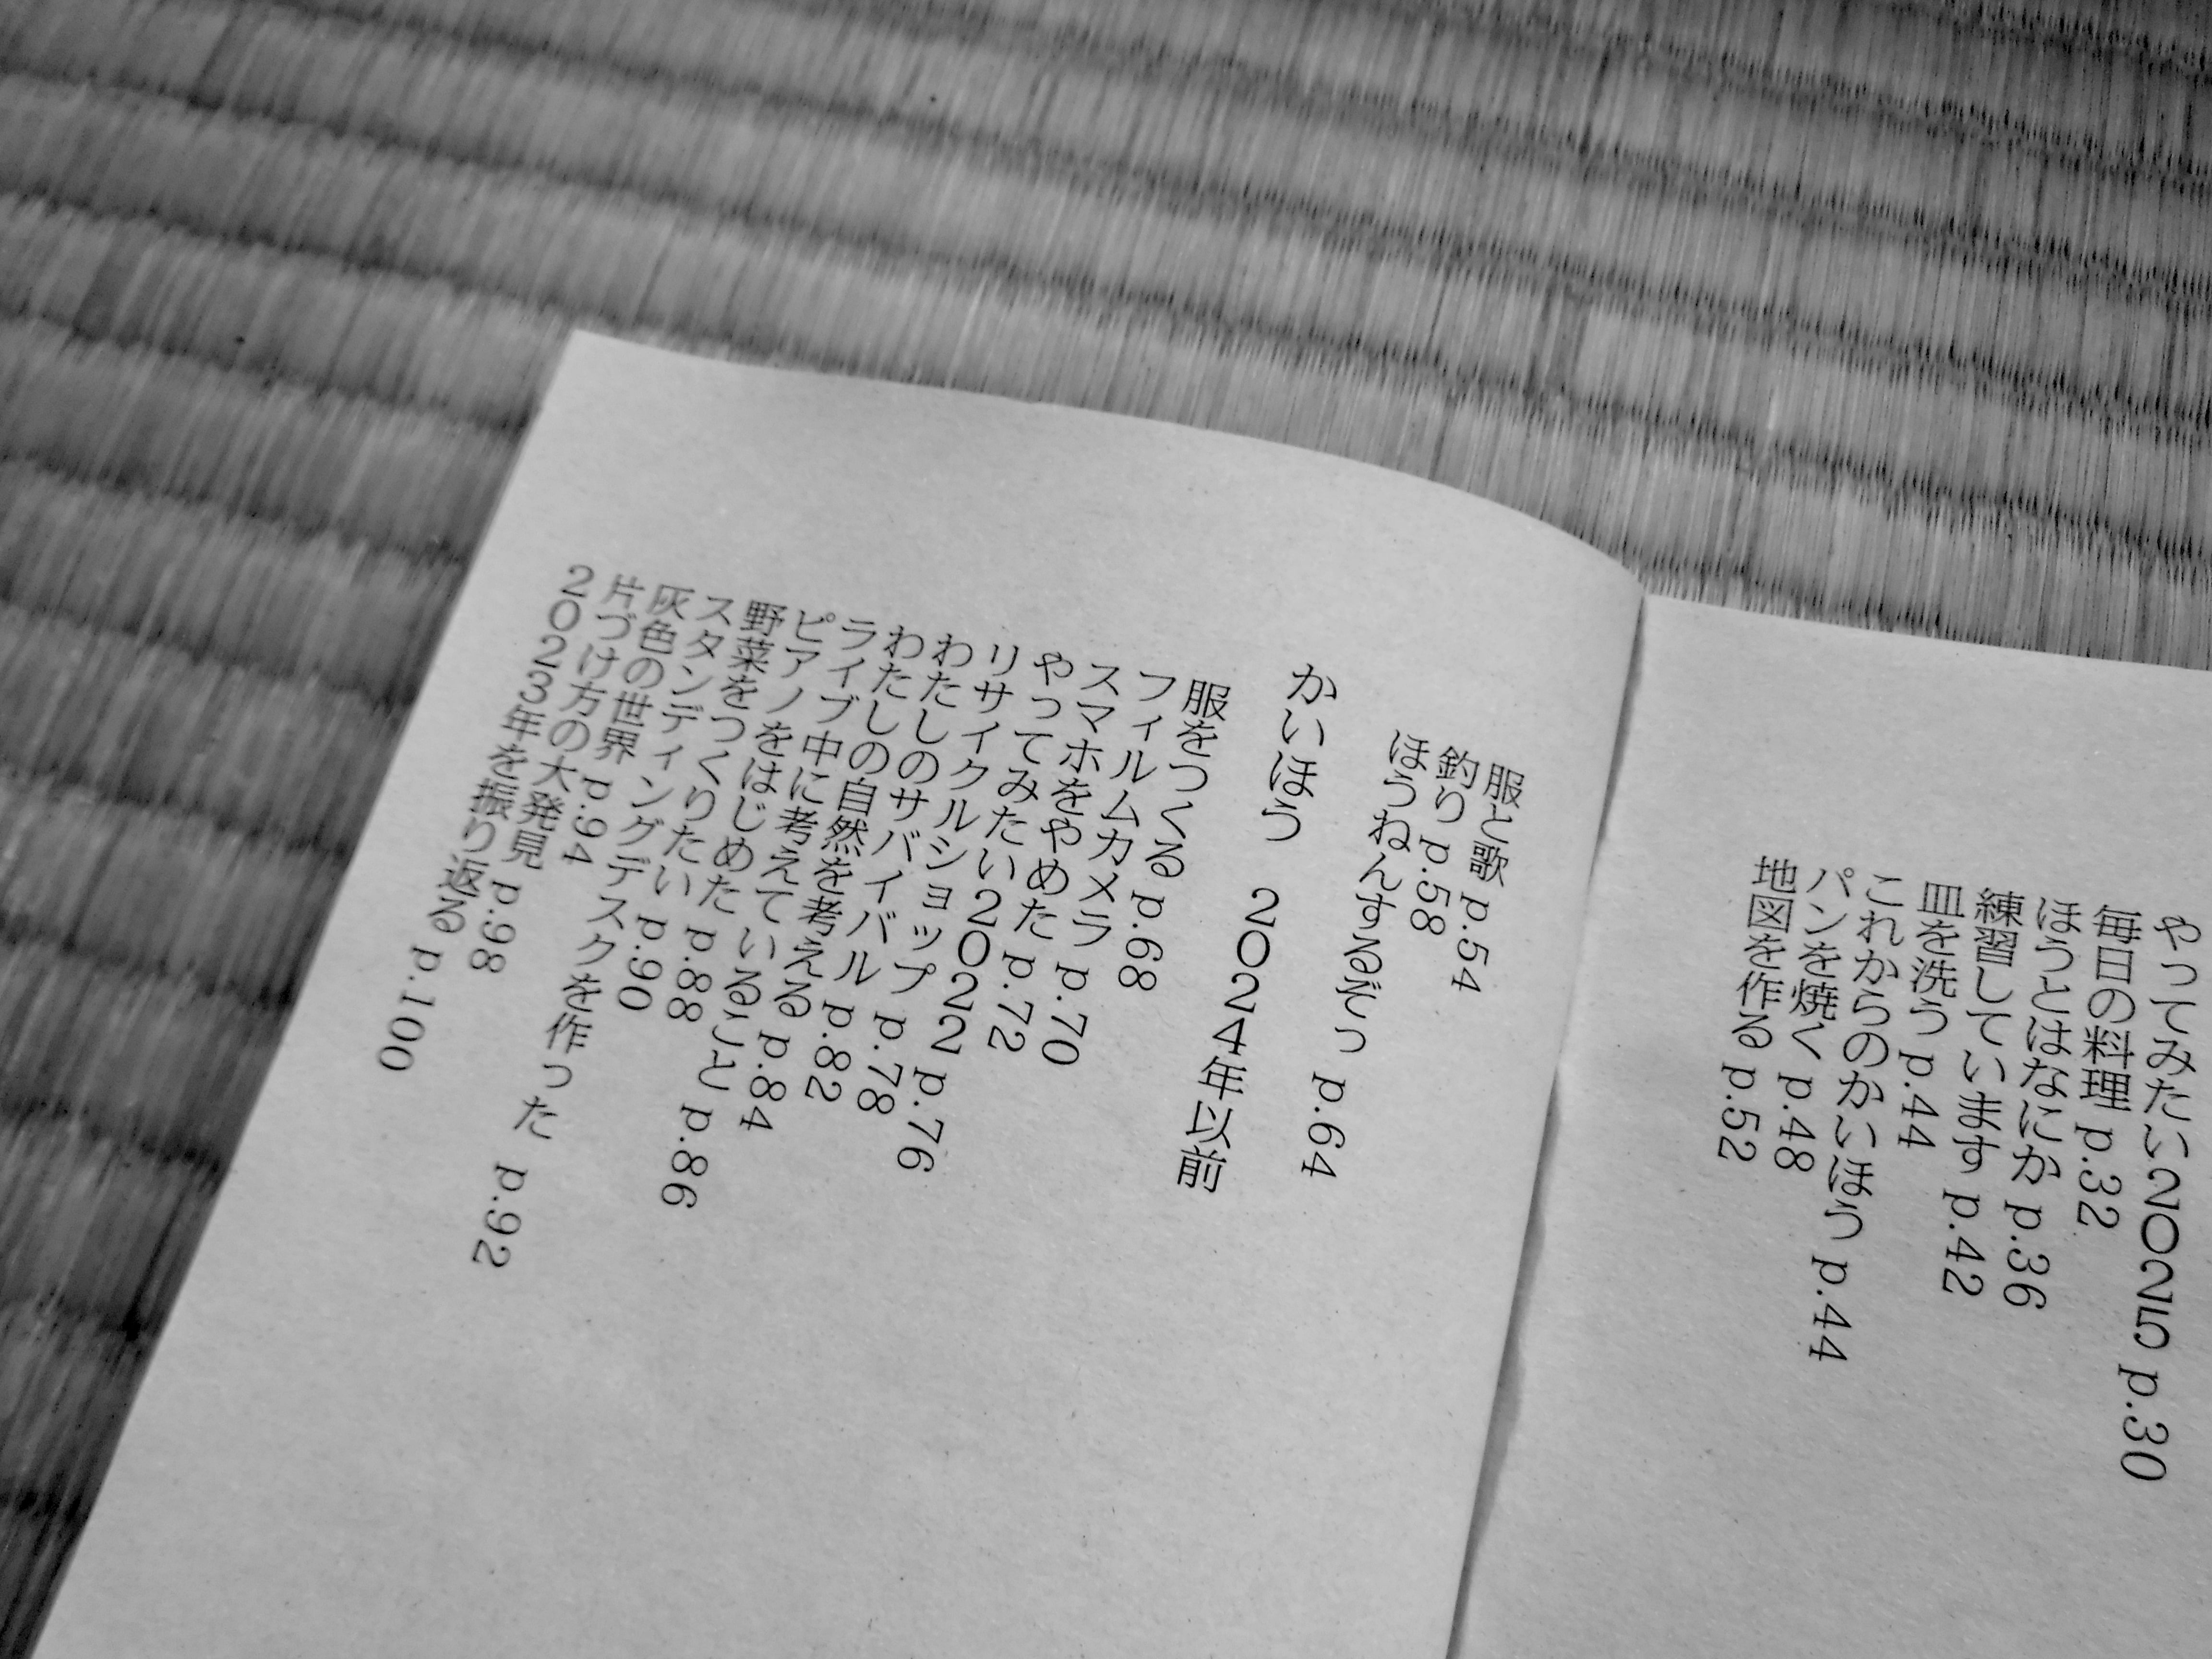 やってみたい2025 p.30
毎日の料理 p.32
ほうとはなにか p.36
練習しています p.42
皿を洗う p.44
これからのかいほう p.44
パンを焼く p.48
地図を作る p.52
服と歌 p.54
釣り p.58
ほうねんするごとっ p.64
かいほう 2024年以前
服をつくる p.68
フィルムカメラ p.70
スマホをやめた p.72
やってみたい2022 p.76
リサイクルショップ p.78
わたしのサバイバル p.82
わたしの自然を考える p.84
ライブ中に考えていること p.86
ピアノをはじめた p.88
野菜をつくりたい p.90
スタンディングデスクを作った p.92
灰色の世界 p.94
片づけ方の大発見 p.98
2023年を振り返る p.100